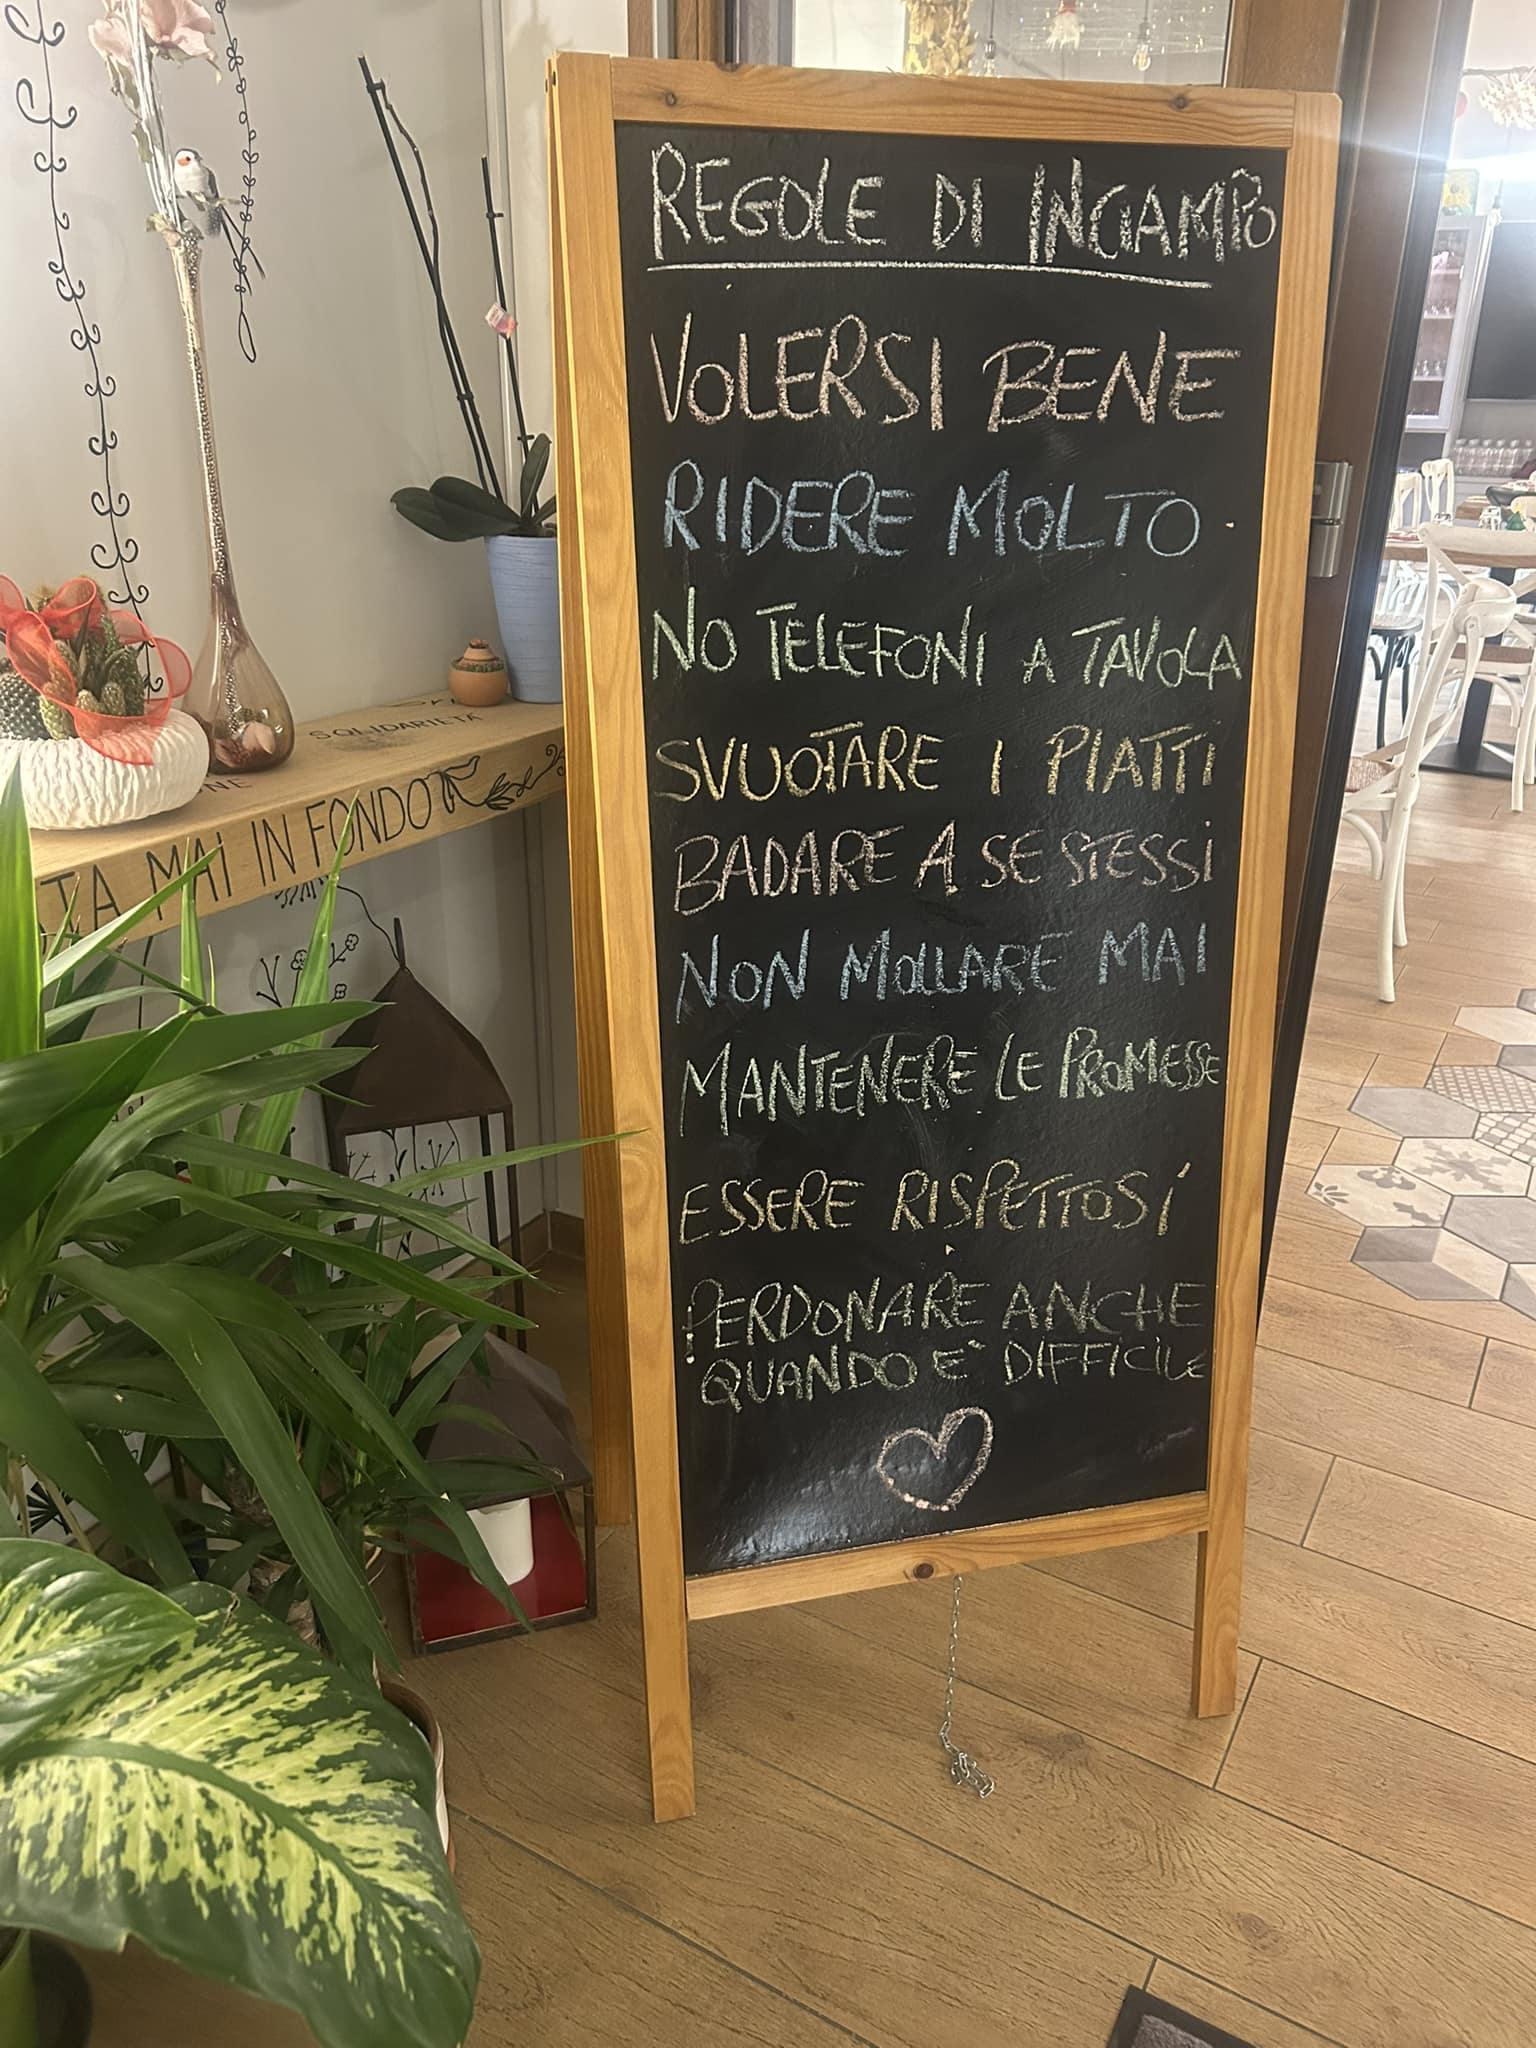 REGOLE DI INCIAMPO
VOLERSI BENE
RIDERE MOLTO
NO TELEFONI A TAVOLA
SVUOTARE I PIATTI
BADARE A SE STESSI
NON MOLLARE MAI
MANTENERE LE PROMESSE
ESSERE RISPETTOSI
PERDONARE ANCHE
QUANDO E' DIFFICILE
SOLIDARIETÀ
MAI IN FONDO